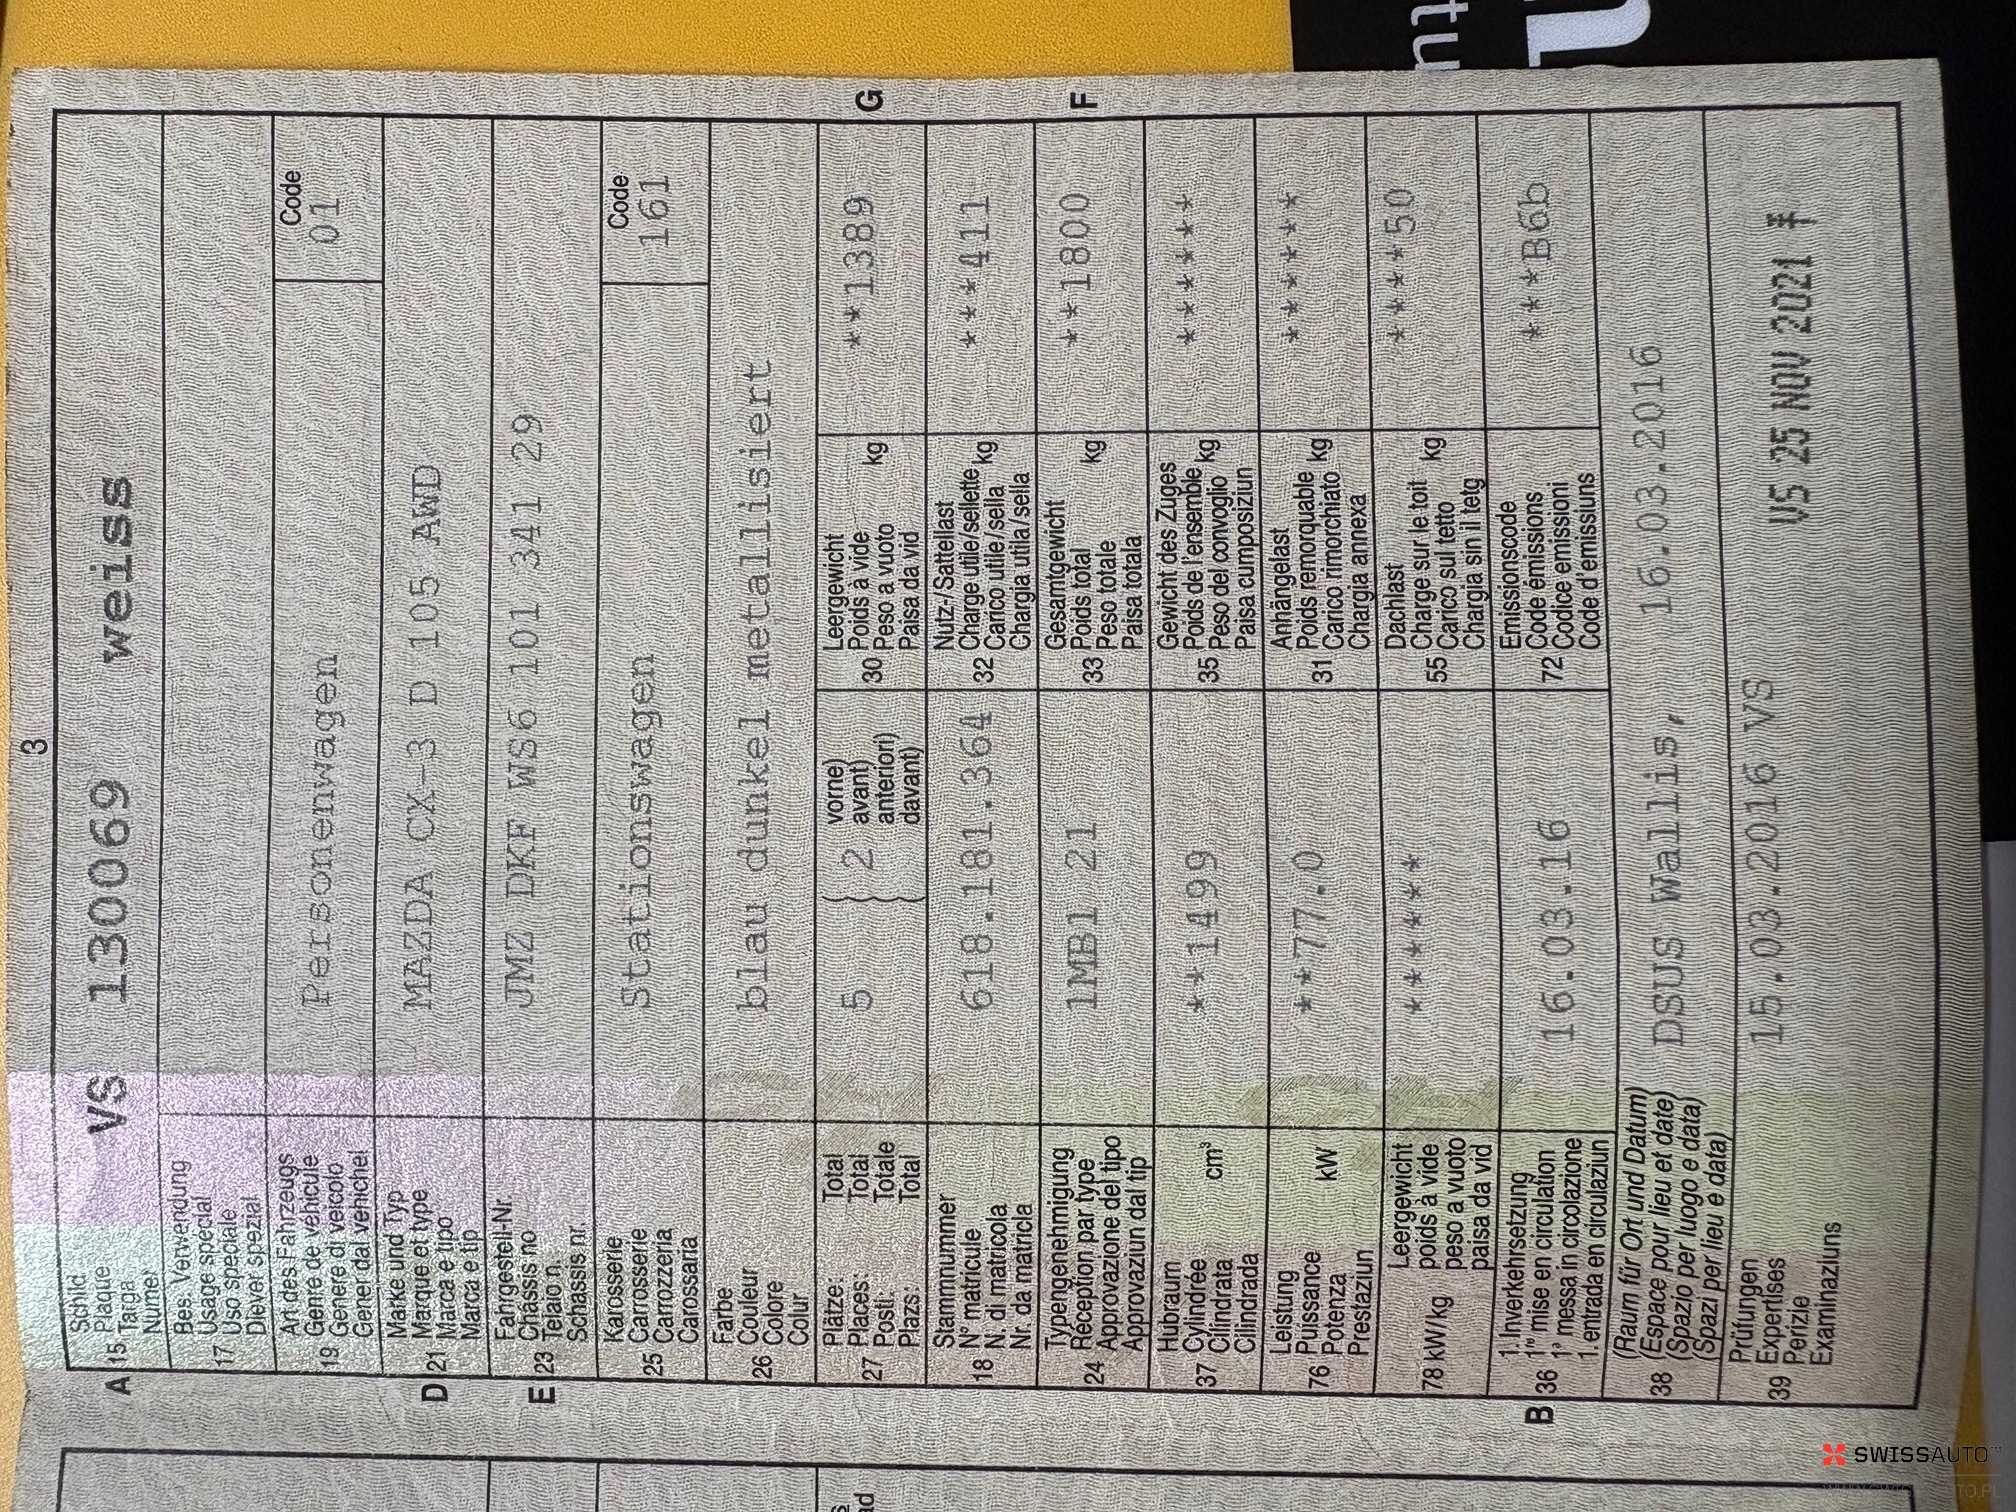 3
A 15 Schild
Plaque
Targa
Numer
VS 130069 weiss
17 Bes. Verwendung
Usage spécial
Uso speciale
Diever spezial
19 Art des Fahrzeugs
Genre de véhicule
Genere di veicolo
Gener dal vehichel
Personenwagen
Code
01
D 21 Marke und Typ
Marque et type
Marca e tipo
Marca e tip
MAZDA CX-3 D 105 AWD
E 23 Fahrgestell-Nr.
Châssis no
Telaio n.
Schassis nr.
JMZ DKF WS6 101 341 29
25 Karosserie
Carrosserie
Carrozzeria
Carossaria
Stationswagen
Code
161
26 Farbe
Couleur
Colore
Colur
blau dunkel metallisiert
27 Plätze: Total
Places: Total
Posti: Totale
Plazs: Total
5 { 2 vorne)
avant)
anteriori)
davant)
30 Leergewicht
Poids à vide
Peso a vuoto kg
Paisa da vid
**1389 G
18 Stammnummer
N° matricule
N. di matricola
Nr. da matricla
618.181.364
32 Nutz-/Sattellast
Charge utile/sellette
Carico utile/sella kg
Chargia utila/sella
***411
24 Typengenehmigung
Réception par type
Approvazione del tipo
Approvaziun dal tip
1MB1 21
33 Gesamtgewicht
Poids total
Peso totale kg
Paisa totala
**1800 F
37 Hubraum
Cylindrée
Cilindrata cm³
Cilindrada
**1499
35 Gewicht des Zuges
Poids de l'ensemble
Peso del convoglio kg
Paisa cumposiziun
*******
76 Leistung
Puissance
Potenza kW
Prestaziun
**77.0
31 Anhängelast
Poids remorquable
Carico rimorchiato kg
Chargia annexa
*******
78 kW/kg Leergewicht
poids à vide
peso a vuoto
paisa da vid
******
55 Dachlast
Charge sur le toit
Carico sul tetto kg
Chargia sin il tetg
*****50
B 36 1. Inverkehrsetzung
1re mise en circulation
1a messa in circolazione
1. entrada en circulaziun
16.03.16
72 Emissionscode
Code émissions
Codice emissioni
Code d'emissiuns
***B6b
38 (Raum für Ort und Datum)
(Espace pour lieu et date)
(Spazio per luogo e data)
(Spazi per lieu e data)
DSUS Wallis, 16.03.2016
39 Prüfungen
Expertises
Perizie
Examinaziuns
15.03.2016 VS
VS 25 NOV 2021
SWISSAUTO